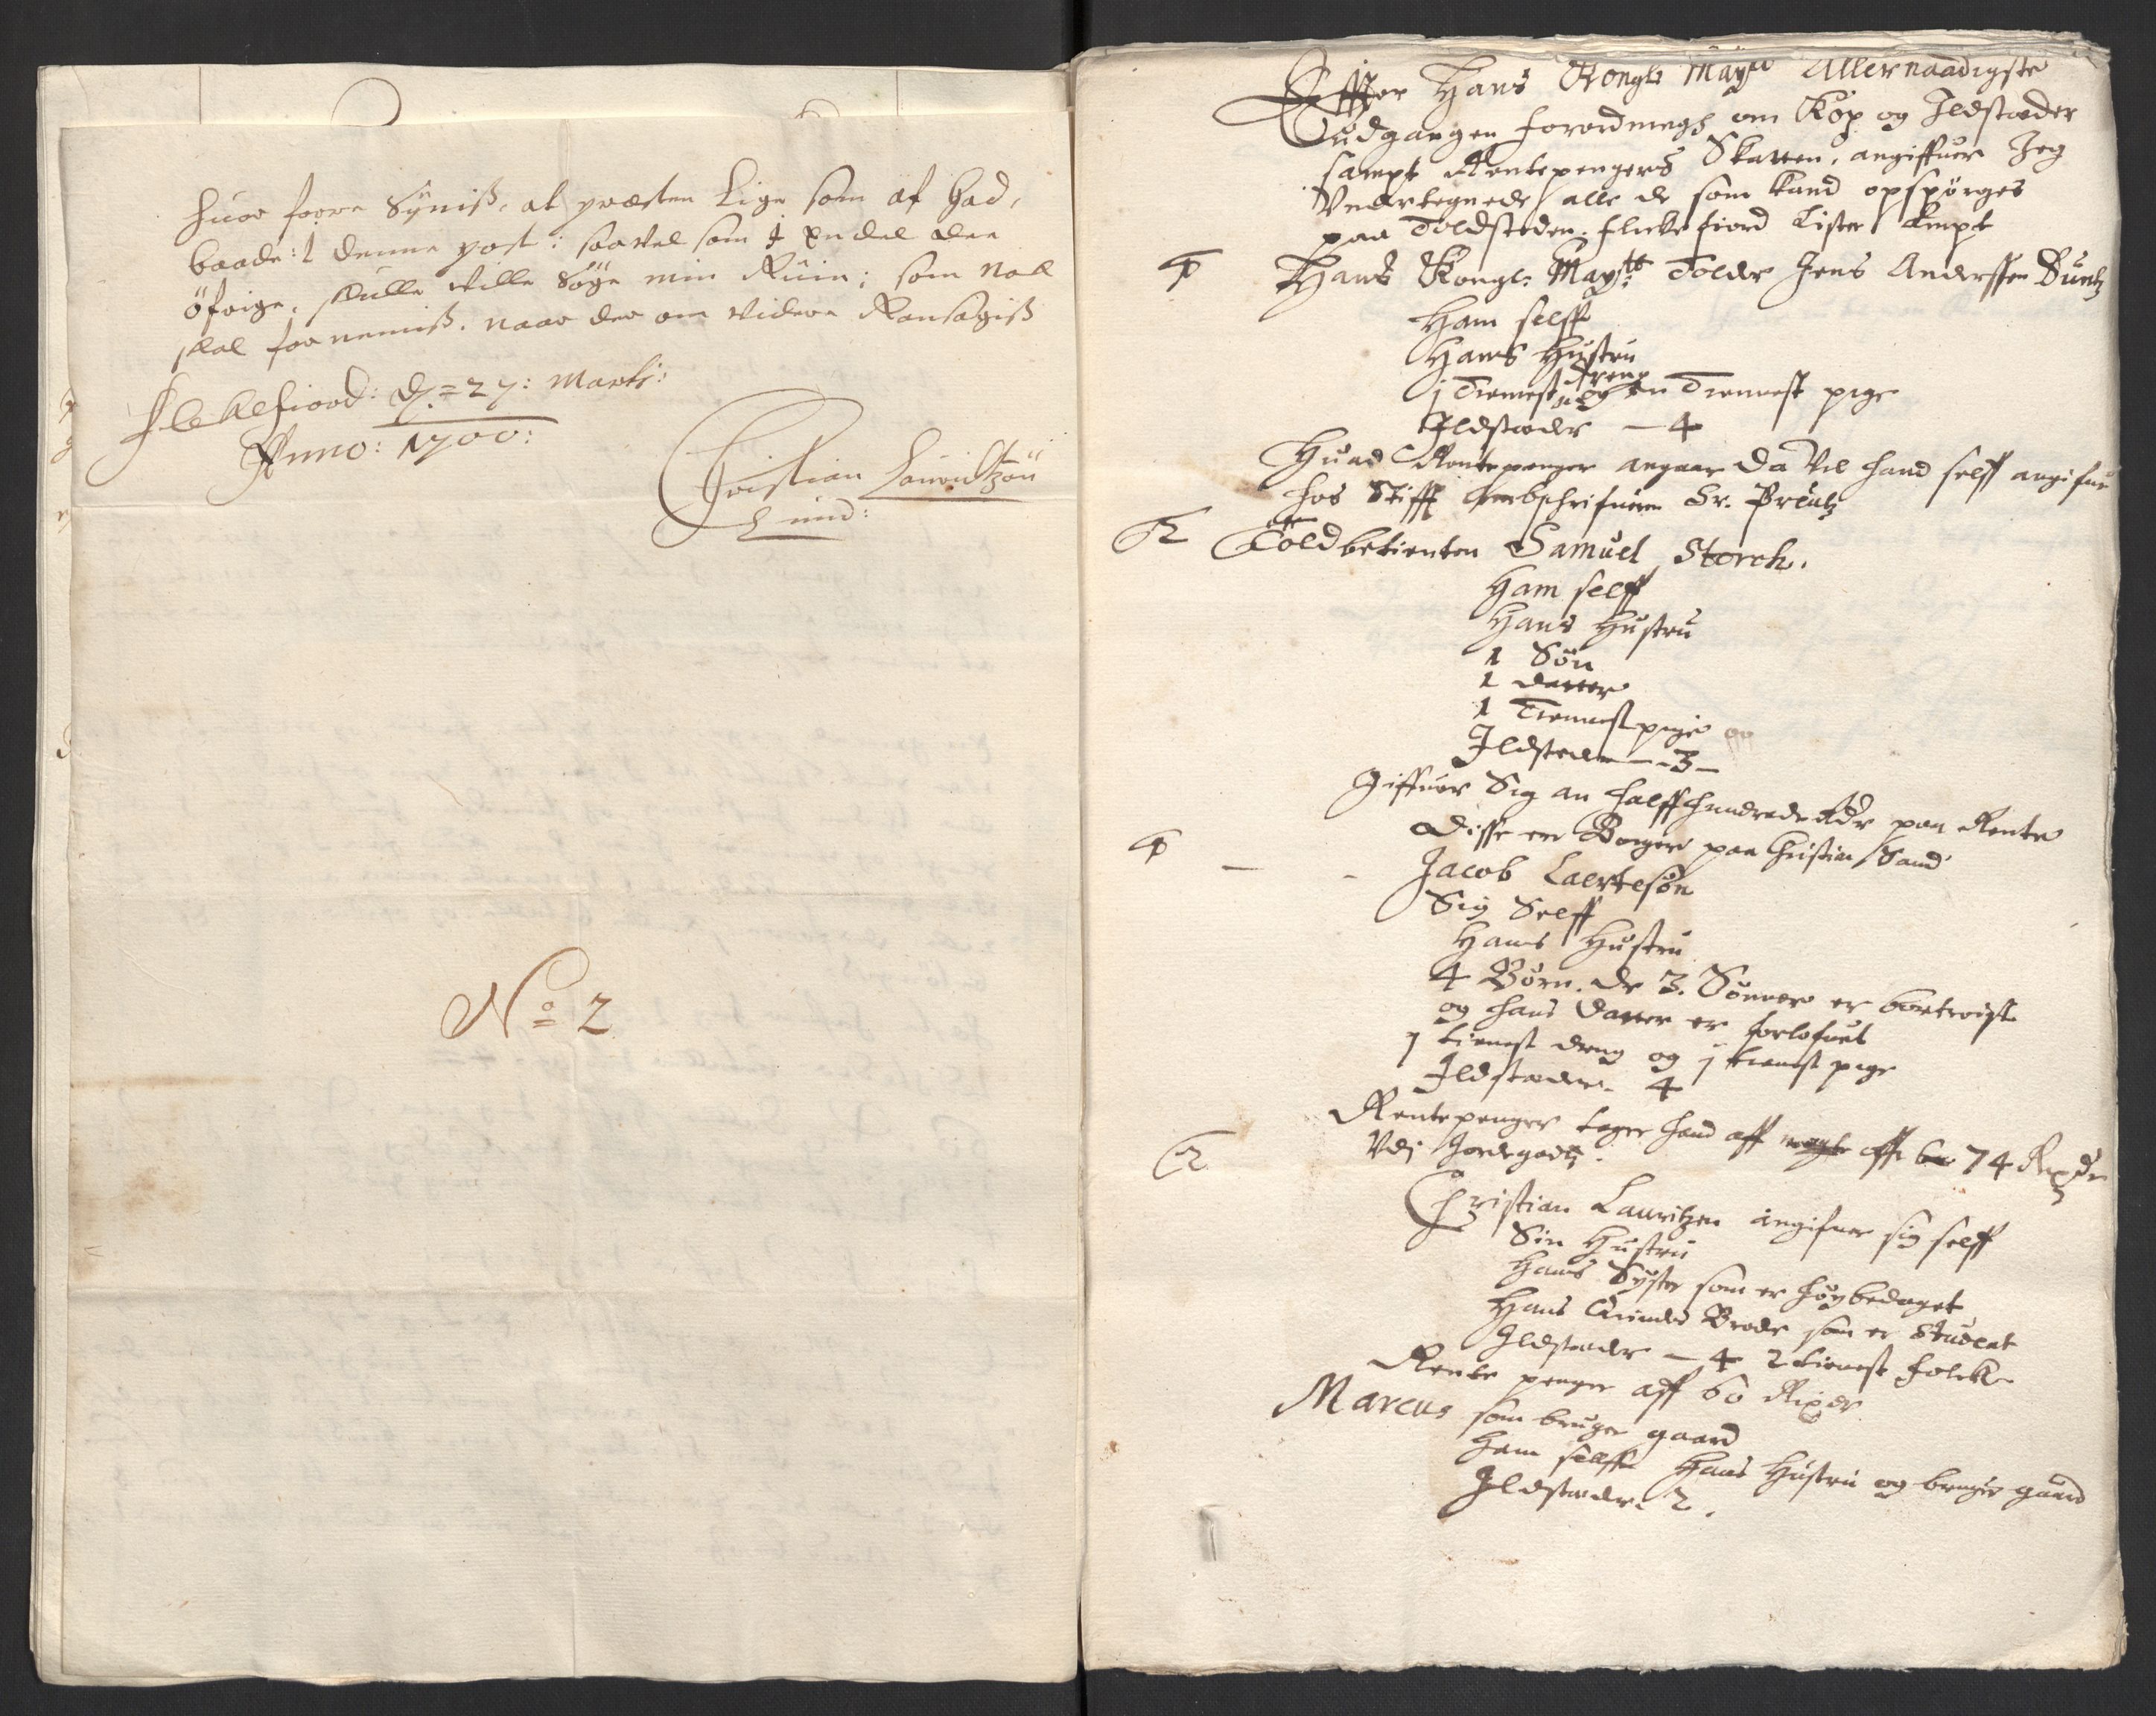 huor forre Syniß, at præsten Lige som af had,
baade: I denne post: saavel som I Endeel dee
öfrige, skulle wille Söge min Ruin; som Noll
skal fornemiß. naar der om videre Ransagiß
Flekefiord: d: 27: Martij:
Anno: 1700:
Christian Lauridtzön
Lund:
No 2
Effter Hans Kongl: Mayts Allernaadigste
udgangen forordningh om Kop og Ildstæder
sampt Rentepengers Skatten, angiffuer Jeg
Vndertegnede alle de som kand opspørges
paa Toldsteden, flickefiord Lister Ampt
Hans Kongl: Maytts Tolder Jens Anderssen Buntz
Ham selff
Hans Hustru
j Tienneste dreng og en Tiennest pige
Ildstæder — 4
Huad Rentepenger angaar da vil hand self angifue
hos Stifft Ambschrifueren Sr. Preutz
2 Toldbetienten Samuel Storch.
Ham selff
Hans Hustru
1 Søn
1 datter
1 Tiennestpige
Ildsteder — 3 —
Giffuer Sig an halffhundrede Rdr paa Rente
Disse er Borger paa Christian Sand
Jacob Laertesøn
Sig Selff
Hans Hustru
4 Børn. de 3. Sønner er bortreist
og hans datter er forlofuet
j tienest dreng og j tienest pige
Ildstæder 4
Rentepenger tager hand aff 74 Rixdr
Vdj Jordegodtz.
2
Christian Lauritzen angifuer sig selff
Sin Hustru
Hans Syster som er høybedaget
Hans Quindes Broder som er Student
Ildstæder — 4 2 tienest folck
Rente penger aff 60 Rixdr
Marcus som bruger gaard
Ham selffuer Hans Hustru og bruger gaard
Ildstæder 2.